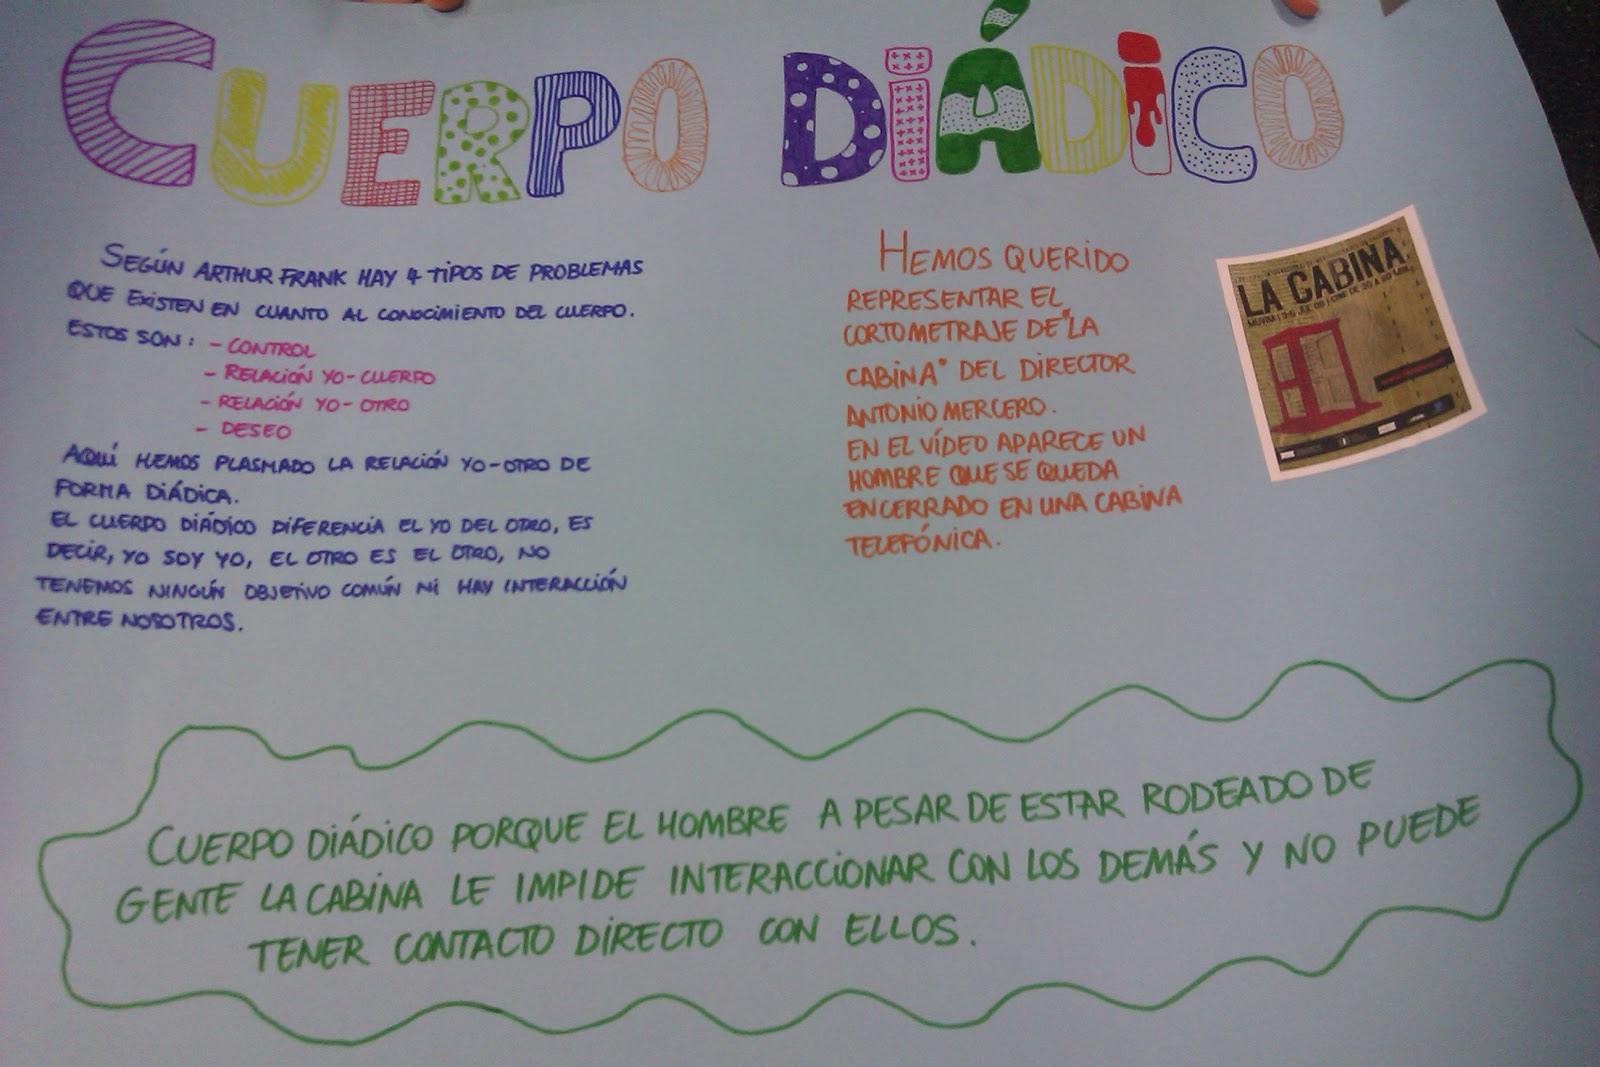 CUERPO DIÁDICO
SEGÚN ARTHUR FRANK HAY 4 TIPOS DE PROBLEMAS
QUE EXISTEN EN CUANTO AL CONOCIMIENTO DEL CUERPO.
ESTOS SON: - CONTROL
- RELACIÓN YO-CUERPO
- RELACIÓN YO-OTRO
- DESEO
AQUÍ HEMOS PLASMADO LA RELACIÓN YO-OTRO DE
FORMA DIÁDICA.
EL CUERPO DIÁDICO DIFERENCIA EL YO DEL OTRO, ES
DECIR, YO SOY YO, EL OTRO ES EL OTRO, NO
TENEMOS NINGÚN OBJETIVO COMÚN NI HAY INTERACCIÓN
ENTRE NOSOTROS.
HEMOS QUERIDO
REPRESENTAR EL
CORTOMETRAJE DE "LA
CABINA" DEL DIRECTOR
ANTONIO MERCERO.
EN EL VÍDEO APARECE UN
HOMBRE QUE SE QUEDA
ENCERRADO EN UNA CABINA
TELEFÓNICA.
LA CABINA
CUERPO DIÁDICO PORQUE EL HOMBRE A PESAR DE ESTAR RODEADO DE
GENTE LA CABINA LE IMPIDE INTERACCIONAR CON LOS DEMÁS Y NO PUEDE
TENER CONTACTO DIRECTO CON ELLOS.